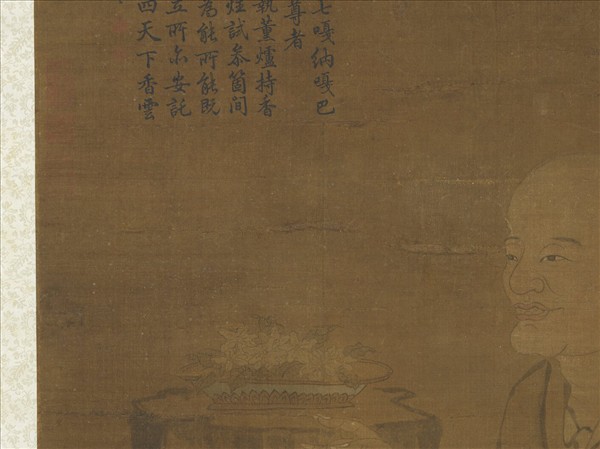 七嘎納嘎巴
尊者
執薰爐持香
烓試叅箇间
為能所能既
立所亦安託
四天下香雲